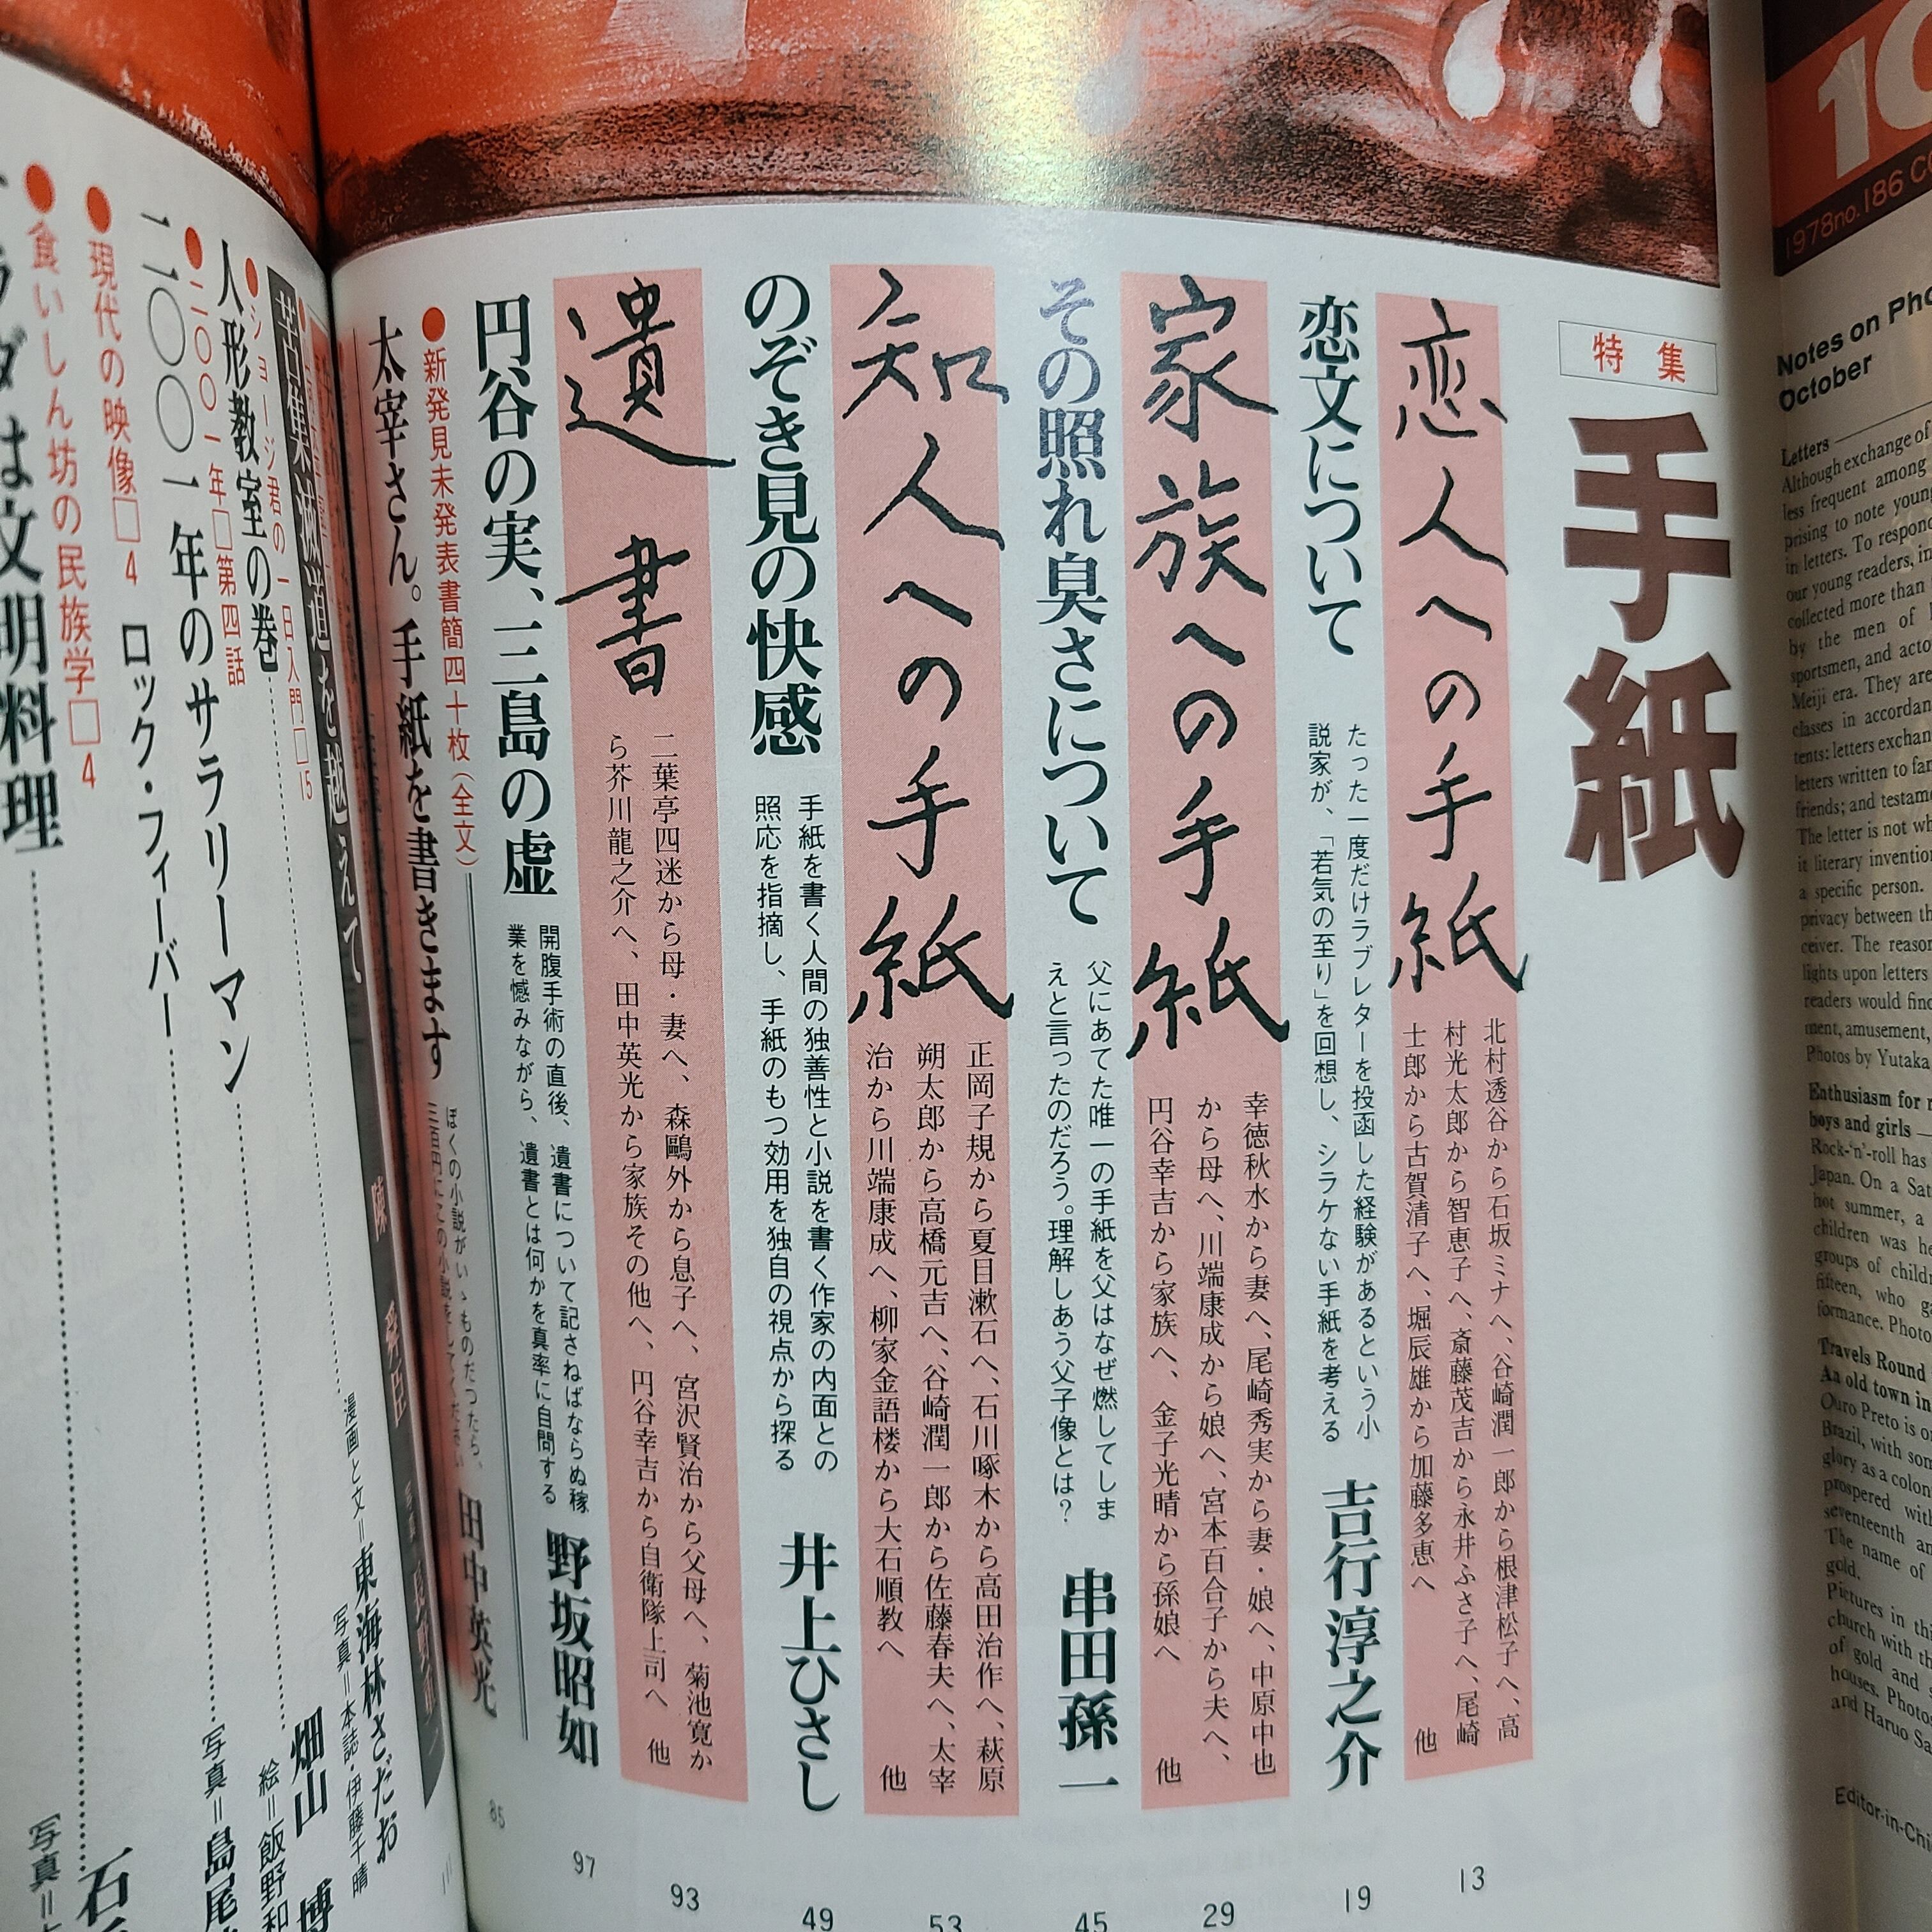 特集
手紙
恋人への手紙
北村透谷から石坂ミナへ、谷崎潤一郎から根津松子へ、高
村光太郎から智恵子へ、斎藤茂吉から永井ふさ子へ、尾崎
士郎から古賀清子へ、堀辰雄から加藤多恵へ 他
13
恋文について
たった一度だけラブレターを投函した経験があるという小
説家が、「若気の至り」を回想し、シラケない手紙を考える
吉行淳之介
19
家族への手紙
幸徳秋水から妻へ、尾崎秀実から妻・娘へ、中原中也
から母へ、川端康成から娘へ、宮本百合子から夫へ、
円谷幸吉から家族へ、金子光晴から孫娘へ 他
29
その照れ臭さについて
父にあてた唯一の手紙を父はなぜ燃してしま
えと言ったのだろう。理解しあう父子像とは?
串田孫一
45
知人への手紙
正岡子規から夏目漱石へ、石川啄木から高田治作へ、萩原
朔太郎から高橋元吉へ、谷崎潤一郎から佐藤春夫へ、太宰
治から川端康成へ、柳家金語楼から大石順教へ 他
53
のぞき見の快感
手紙を書く人間の独善性と小説を書く作家の内面との
照応を指摘し、手紙のもつ効用を独自の視点から探る
井上ひさし
49
遺書
二葉亭四迷から母・妻へ、森鷗外から息子へ、宮沢賢治から父母へ、菊池寛か
ら芥川龍之介へ、田中英光から家族その他へ、円谷幸吉から自衛隊上司へ 他
93
円谷の実、三島の虚
開腹手術の直後、遺書について記さねばならぬ稼
業を憾みながら、遺書とは何かを真率に自問する
野坂昭如
97
●新発見未発表書簡四十枚(全文)
太宰さん。手紙を書きます
ぼくの小説がいゝものだつたら、
田中英光
85
苦集滅道を越えて
陳舜臣
●ショージ君の一日入門□15
人形教室の巻
漫画と文=東海林さだお
写真=本誌・伊藤千晴
●二〇〇一年□第四話
二〇〇一年のサラリーマン
畑山 博
絵=飯野和
●現代の映像□4
ロック・フィーバー
写真=島尾
●食いしん坊の民族学□4
ダは文明料理
石
写真=
10
1978no.186
Notes on Pho
October
Letters
Although exchange of
less frequent among
prising to note young
in letters. To respond
our young readers, in
collected more than
by the men of
sportsmen, and acto
Meiji era. They are
classes in accordan
tents: letters exchan
letters written to far
friends; and testame
The letter is not wh
it literary invention
a specific person.
privacy between th
ceiver. The reason
lights upon letters
readers would find
ment, amusement,
Photos by Yutaka
Enthusiasm for r
boys and girls
Rock-'n'-roll has
Japan. On a Sat
hot summer, a
children was he
groups of childr
fifteen, who ga
formance. Photo
Travels Round
An old town in
Ouro Preto is on
Brazil, with som
glory as a colon
prospered with
seventeenth an
The name of
gold.
Pictures in thi
church with th
of gold and s
houses. Photos
and Haruo Sa
Editor-in-Chi